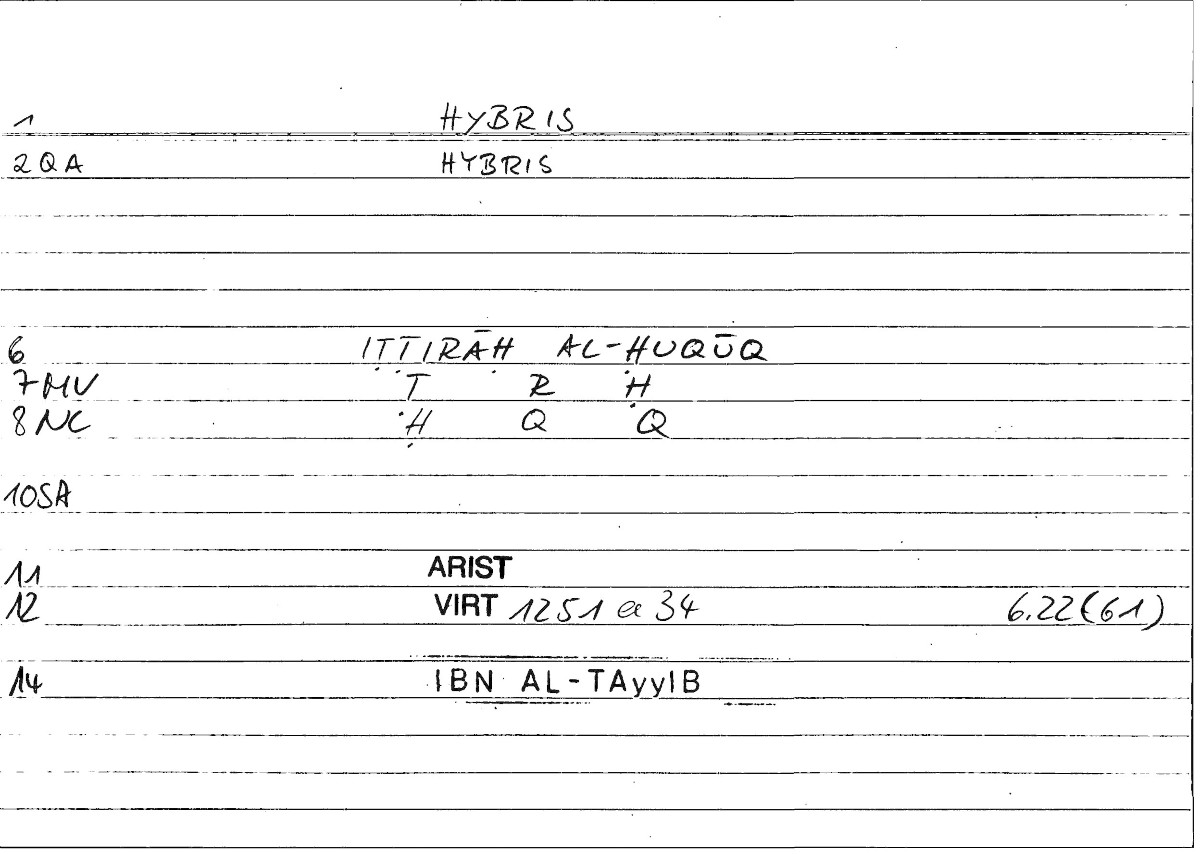 1 HYBRIS
2QA HYBRIS
6 IṬṬIRĀḤ AL-ḤUQŪQ
7MV Ṭ R Ḥ
8NC Ḥ Q Q
10SA
11 ARIST
12 VIRT 1251 a 34 6.22(61)
14 IBN AL-TAyyIB